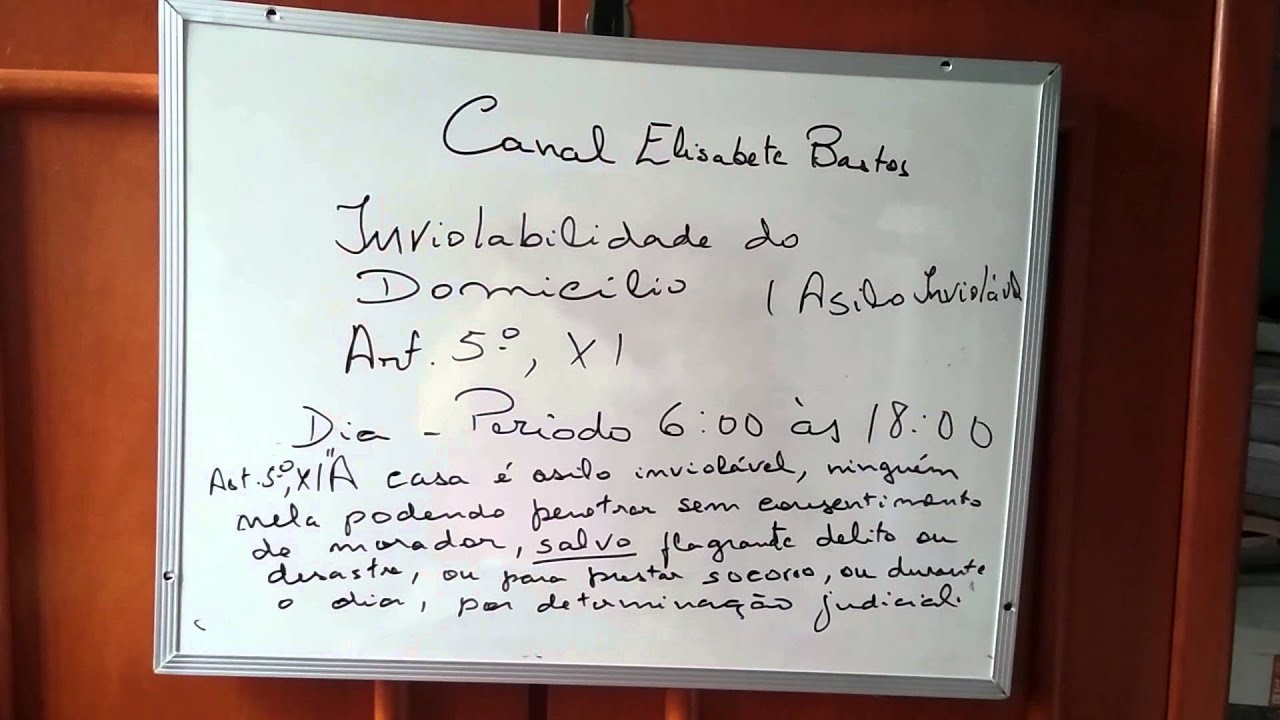 Canal Elisabete Bastos
Inviolabilidade do
Domicílio (Asilo Inviolável
Art. 5º, XI
Dia - Período 6:00 às 18:00
Art. 5º, XI "A casa é asilo inviolável, ninguém
nela podendo penetrar sem consentimento
do morador, salvo flagrante delito ou
desastre, ou para prestar socorro, ou durante
o dia, por determinação judicial.